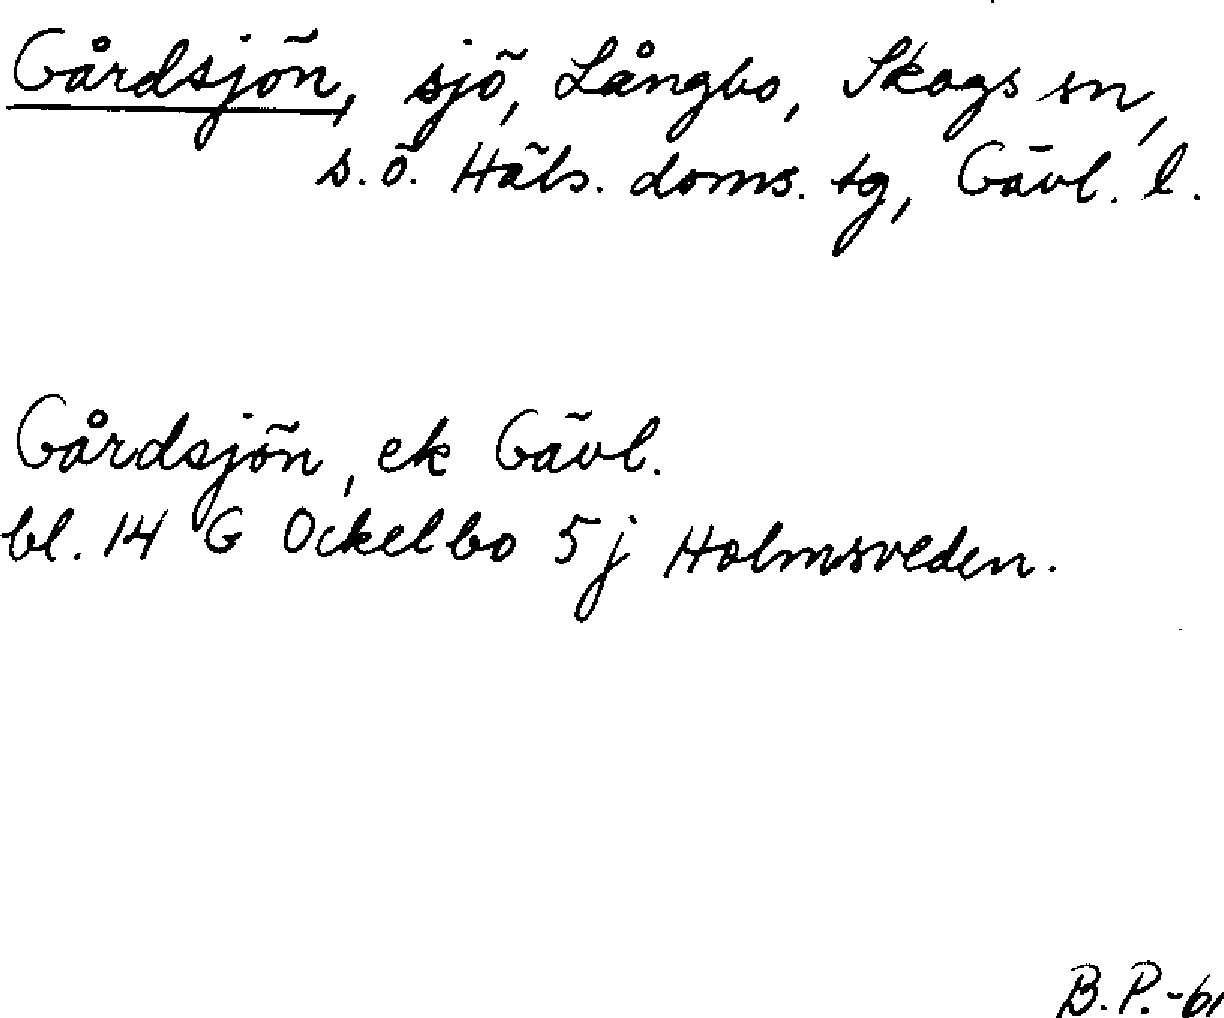 Gårdsjön, sjö, Långbo, Skogs sn,
s.ö. Häls. doms. tg, Gävl. l.
Gårdsjön, ek Gävl.
bl. 14 G Ockelbo 5 j Holmsveden.
B.P.-61